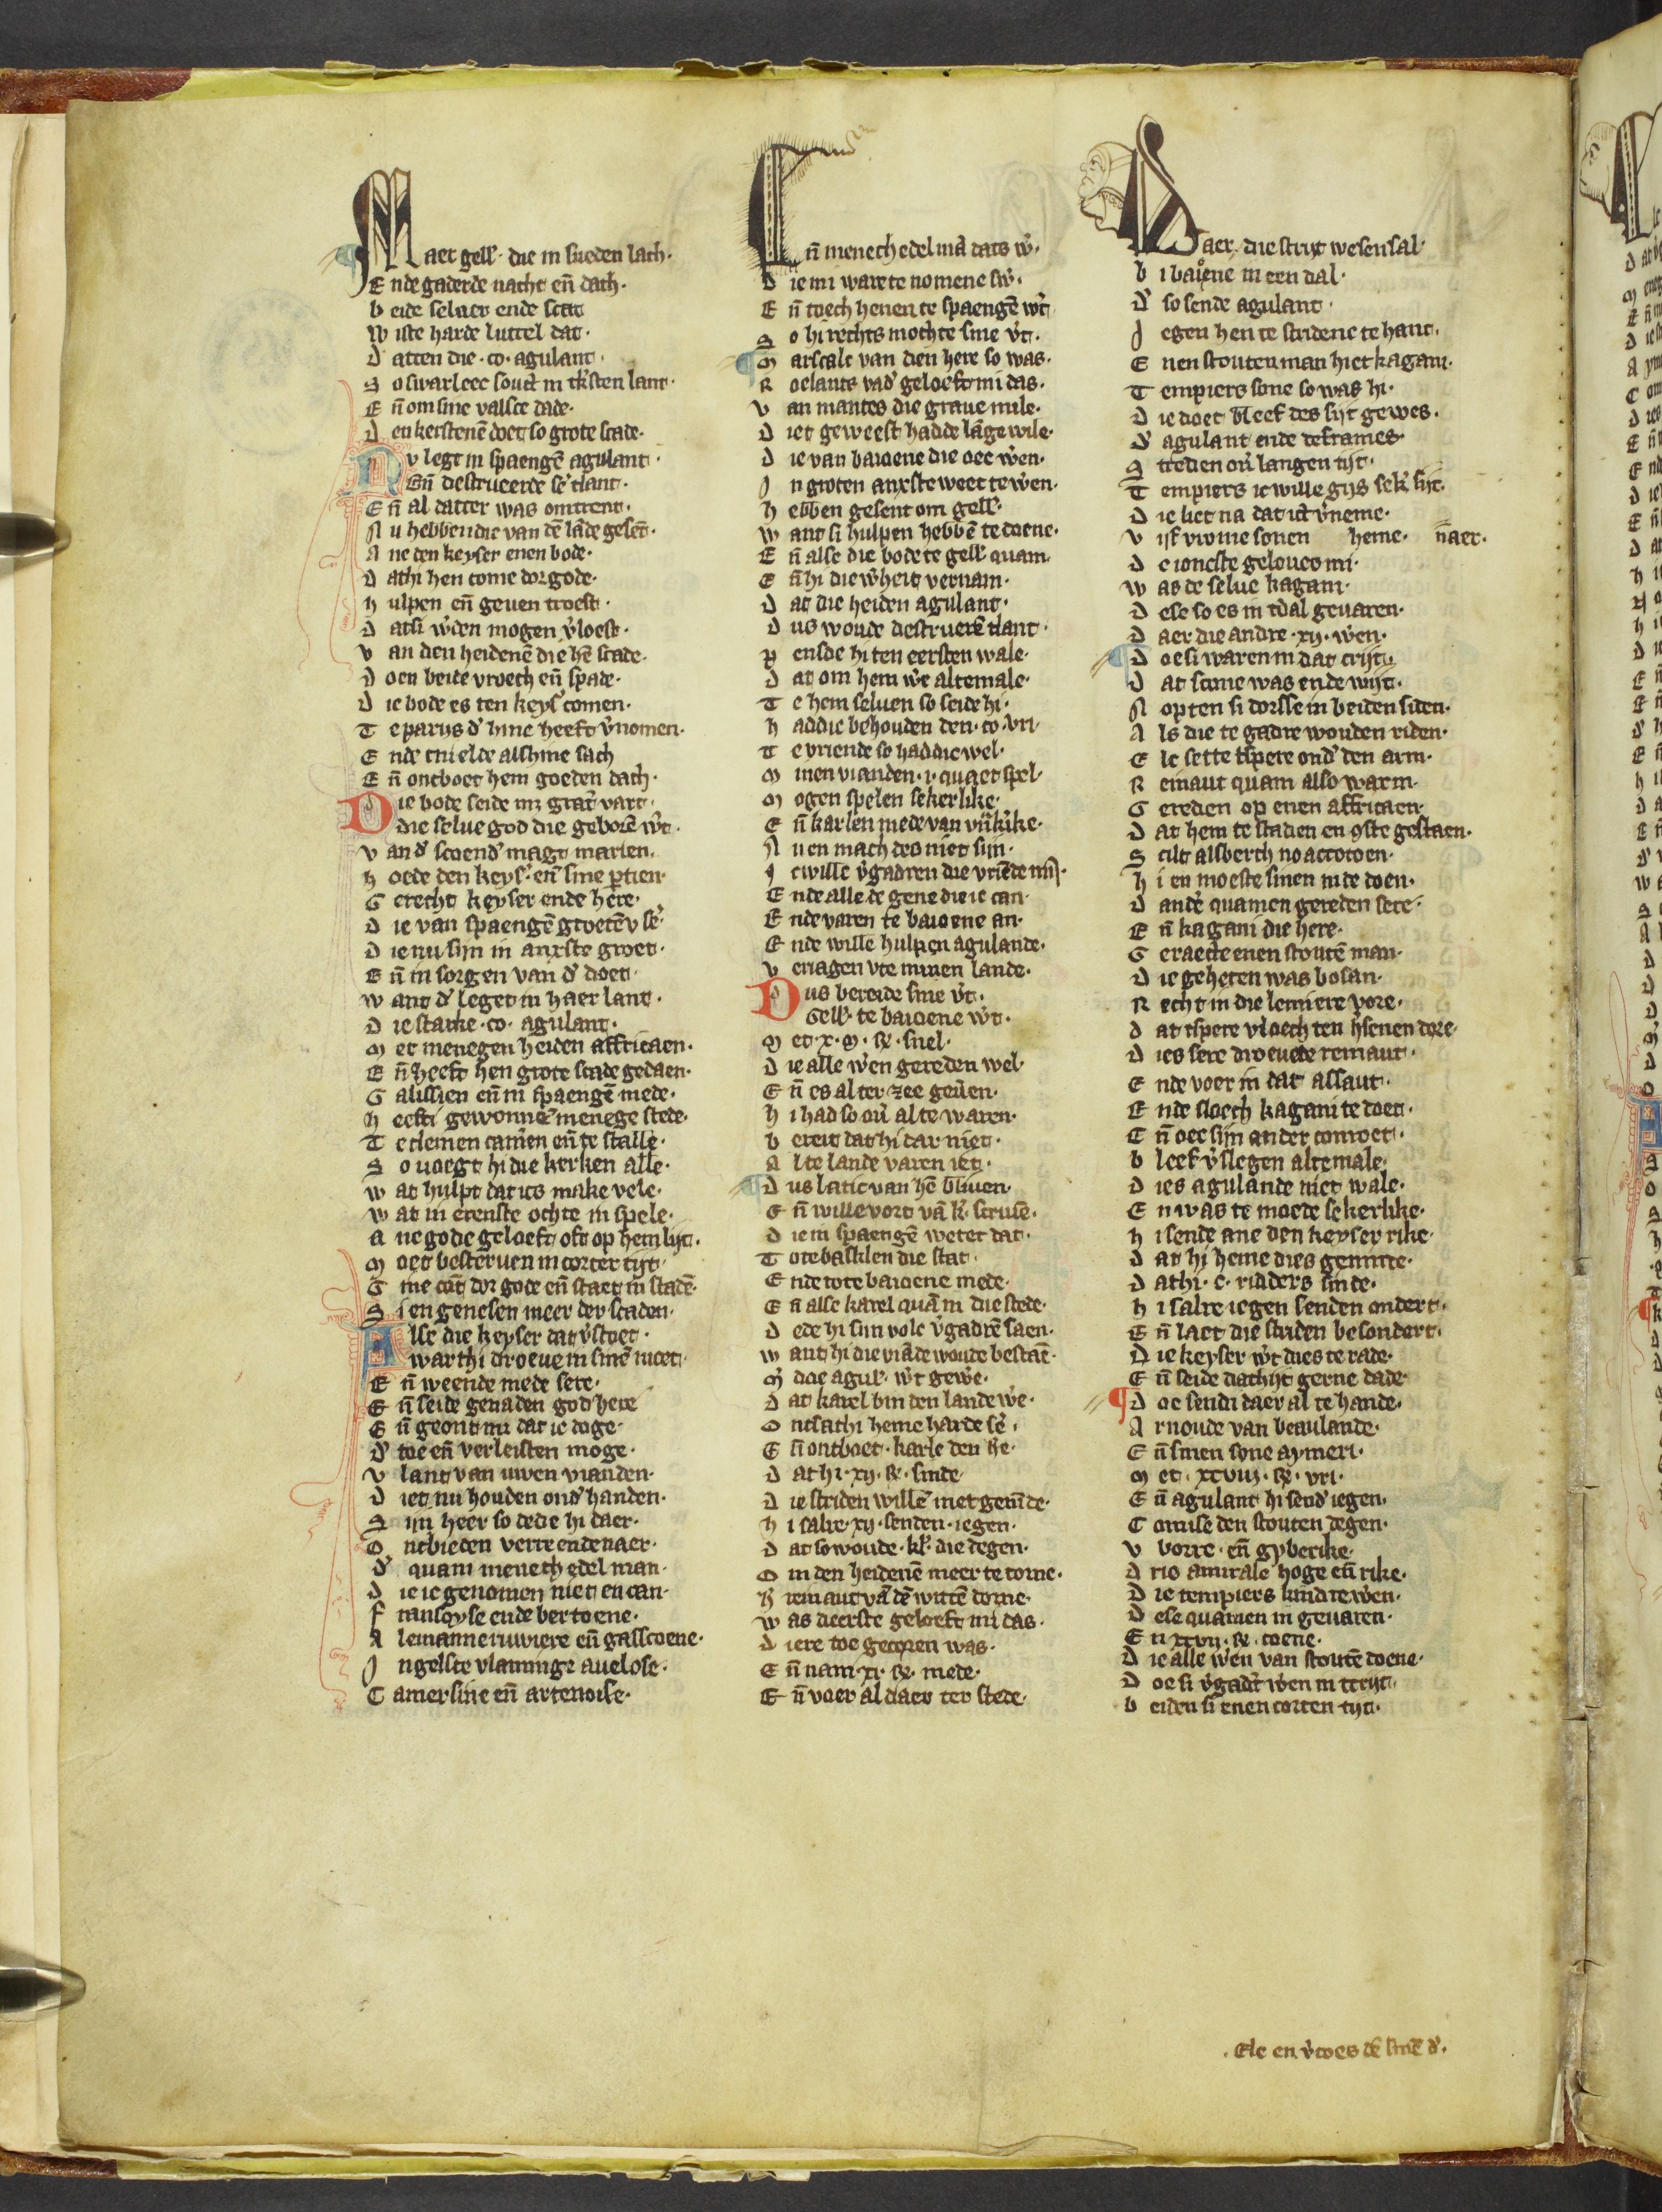 Maer gell'. die in sueden lach.
Ende gaderde nacht en̄ dach.
beide seluer ende scat
Wiste harde luttel dat.
Datten die .co. agulant.
So swarleec souct in k'sten lant.
En̄ om sine valsce dade.
Den kerstenē doet so grote scade.
Nv legt in spaengē agulant.
En̄ destrueerde se' tlant.
En̄ al datter was omtrent.
Nu hebben die van dē lāde gesēt.
Ane den keyser enen bode.
Dathi hen come dor gode.
hulpen en̄ geuen troest.
Datsi w'den mogen v'loest.
van den heidenē die hē scade.
Doen beide vroech en̄ spade.
Die bode es ten keys' comen.
Te parijs d' hine heeft v'nomen.
Ende cnielde alshine sach
En̄ ontboet hem goeden dach.
Die bode seide
die selue god die geborē w't.
van d' scoend' magt marien.
hoede den keys'. en̄ sine ptien.
Gerecht keyser ende here.
Die van spaengē groetē v se'
Die nu sijn in anxste groet.
En̄ in sorgen van d' doet.
want d' leget in haer lant.
Die starke .co. agulant.
Met menegen heiden affricaen.
En̄ heeft hen grote scade gedaen.
Galissien en̄ in spaengē mede.
heefti gewonnē menege stede.
Teclemen camen en̄ te stalle.
So uoegt hi die kerken alle.
wat hulpt dat ics make vele.
wat in erenste ochte in spele.
Ane gode geloeft oft op hem lijt.
Moet besteruen in corter tijt.
Gine cōt dor gode en̄ staet in stadē.
Si en genesen meer der scaden.
Alse die keyser dat v'stoet.
warthi droeue in sinē moet.
En̄ weende mede sere.
En̄ seide genaden god here
En̄ geont mi dat ic doge.
D' toe en̄ verleisten moge.
v lant van uwen vianden.
Diet nu houden ond' handen.
Sijn heer so dede hi daer.
Ontbieden verre ende naer.
D' quam menech edel man.
Die ic genomen niet en can.
fransoyse ende bertoene.
Alemanne riuwiere en̄ gasscoene.
Ingelsce vlaminge auelose.
Camersine en̄ artenoise.
En̄ menech edel mā dats w'.
Die mi ware te nomene sw'.
En̄ toech henen te spaengē w't
So hi rechts mochte sine v't.
Marscalc van dien here so was.
Roelants vad' geloeft mi das.
van mantes die graue mile.
Diet geweest hadde lāge wile.
Die van baioene die oec w'en.
In groten anxste weet te w'en.
hebben gesent om gell'.
want si hulpen hebbē te doene.
En̄ alse die bode te gell' quam.
En̄ hi die w'heit vernam.
Dat die heiden agulant.
Dus woude destruerē tlant.
pensde hi ten eersten wale.
Dat om hem w'e altemale.
Te hem seluen so seide hi.
haddic behouden den .co. vri.
Te vriende so haddic wel.
Minen vianden .i. quaet spel.
Mogen spelen sekerlike.
En̄ karlen mede van vrākrike.
Nu en mach des niet sijn.
Icwille v'gadren die vriēde mijn.
Ende alle de gene die ic can.
Ende varen te baioene an.
Ende wille hulpen agulande.
veriagen vte minen lande.
Dus bereide sine v't.
Gell' te baioene w't.
Met .x. .M. snel.
Die alle w'en gereden wel.
En̄ es al ter zee geu'en.
hi had so ou' al te waren.
bereit dat hi dar niet.
Al te lande varen iet.
Dus latic van hē bliuen.
En̄ wille vort vā k'. scriuē.
Die in spaengē wetet dat.
Tote basklen die stat.
Ende tote baioene mede.
En̄ alse karel quā in die stede.
Dede hi sijn volc v'gadrē saen.
want hi die viāde woude bestaē.
M' doe agul'. w't gew'e.
Dat karel bin den lande we'.
Ontsathi heme harde se'.
En̄ ontboet .karle den he'.
Dat hi .xij. sinde
Die striden willē met genīde.
hi salre .xij. senden. iegen.
Dat so woude .kl'. die degen.
Om den heidenē meer te torne.
Reinaut vā dē wittē dorne.
was deerste geloeft mi das.
Diere toe gecoren was.
En̄ nam .xi. mede.
En̄ voer al daer ter stede.
Daer. die strijt wesen sal.
bi baioene in een dal.
D' so sende agulant.
Iegen hen te stridene te hant.
Enen stouten man hiet kagani.
Tempiers sone so was hi.
Die doet bleef des sijt gewes.
D' agulant ende deframes.
Streden ou' langen tijt.
Tempiers ic wille gijs sek' sijt.
Die liet na dat ict v'neme.
vijf vrome sonen heme. naer.
De ioncste geloues mi.
was de selue kagani.
Dese so es in t'dal geuaren.
Daer die andre .xij. w'en.
Doe si waren in dat crijt.
Dat scone was ende wijt.
Nopten si dorsse in beiden siden.
Als die te gadre wouden riden.
Elc sette tspere ond' den arm.
Reinaut quam also warm.
Gereden op enen affricaen.
Dat hem te staden en 9ste gestaen.
Scilt alsberch no accotoen.
hi en moeste sinen inde doen.
Dand'e quamen gereden sere.
En̄ kagani die here.
Geraecte enen stoutē man.
Die geheten was bosan.
Recht in die lemiere vore.
dat tspere vloech ten h'senen dore.
Dies sere droeuede reinaut.
Ende voer in dat assaut.
Ende sloech kagani te doet.
En̄ oec sijn ander conroet.
bleef v'slegen altemale.
Dies agulande niet wale.
En was te moede sekerlike.
hi sende ane den keyser rike
Dat hi heme dies geninde.
Dathi .c. ridders sinde.
hi salre iegen senden ondert.
En̄ laet die striden besondert.
Die keyser w't dies te rade.
En̄ seide dathijt gerne dade
Doe sendi daer al te hande.
Arnoude van beaulande.
En̄ sinen sone aymeri.
Met .xcviij. vri.
En̄ agulant hi send' iegen.
Comise den stouten degen.
v borre. en̄ gyberike.
Drio amirale hoge en̄ rike.
Die tempiers kind're w'en.
Dese quamen in geuaren.
En xcvij. coene.
Die alle w'en van stoutē doene.
Doe si v'gad't w'en in tcrijt.
beiden si enen corten tijt.
. Elc en v'coes dē sinē d'.